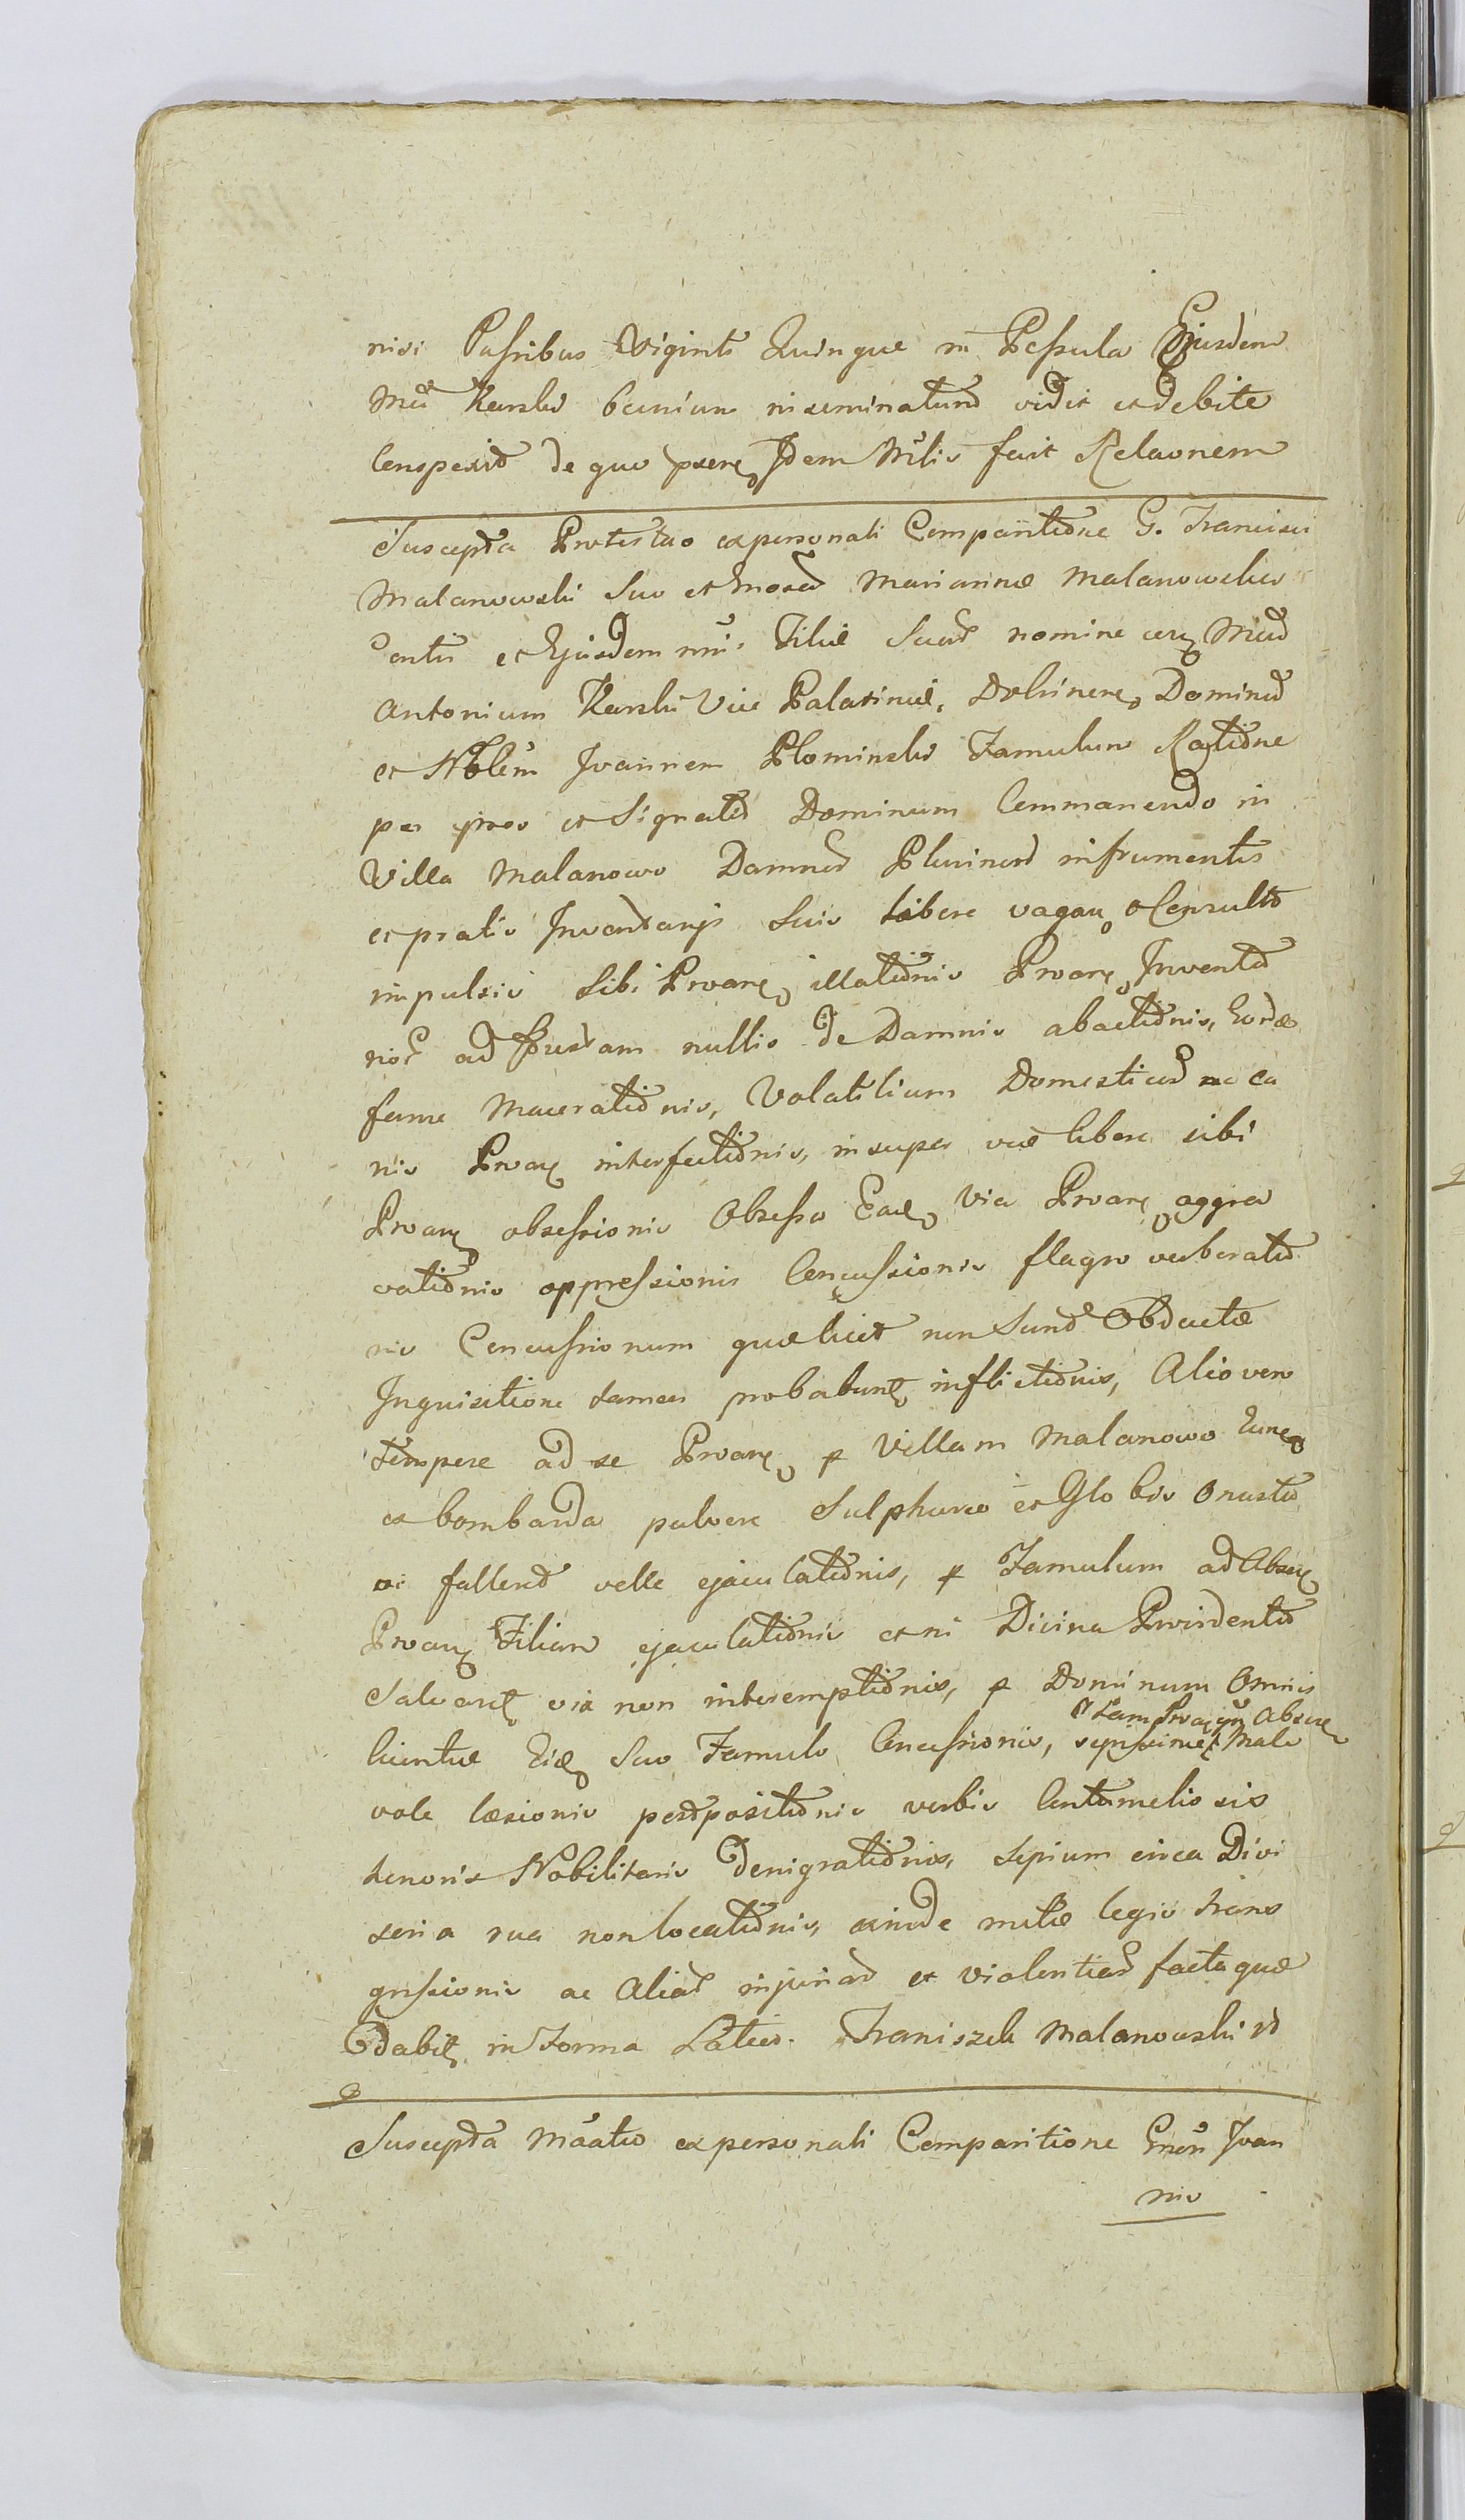 nisi Passibus Viginti Quinque in Pessula Ejusdem
Mci Karski inseminatum vidit et debite
Conspexit de quo Idem Mlis fecit Relaonem
Suscepta Protestao ex personali Comparitione G. Francisci
Malanowski suo et Marianna Malanowska
et Ejusdem Filiæ nomine
Antonium Karski Vice Palatinu. Dobrinen. Dominu
et Nblem Joannem Plominski Famulum Ratione
per et Signatu Dominum Commanendo in
Villa Malanowo Damnor Plurimor in frumentis
et pratis Inventarijs suis libere vagan Consulto
impulsis sibi Proan illationis Proan Inventa
rior ad nullis de Damnis abactionis,
fame Macerationis, Volatilium Domesticor ac ca
nis Proan interfectionis, insuper viæ liberæ sibi
Proan obsessionis Obsesso Via Proan aggra
vationis oppressionis Concussionis flagro verberatio
nis Concussionum quæ licet non sunt Obductæ
Inquisitione tamen probabunt inflictionis, Alio vero
tempore ad se Proan p Villam Malanowo
ex bombarda pulvere Sulphureo et Globis onusta
fallend velle ejaculationis, p Famulum ad
Proan Filiam ejaculationis et ni Divina Providentia
Salvaret vix non interemptionis, p Dominum Omnis
licentiæ suo Famulo Concussionis, Male
vole læsionis perdpositionis verbis Contumeliosis
honoris Nobilitaris Denigrationis, Sepium circa Divi
soria sua non locationis, exinde legis trans
gressionis ac Aliar injuriar et violentiar facta quæ
dabit in Forma Latior. Franiszek Malanowski
Suscepta Maatio ex personali Comparitione Joan
nis